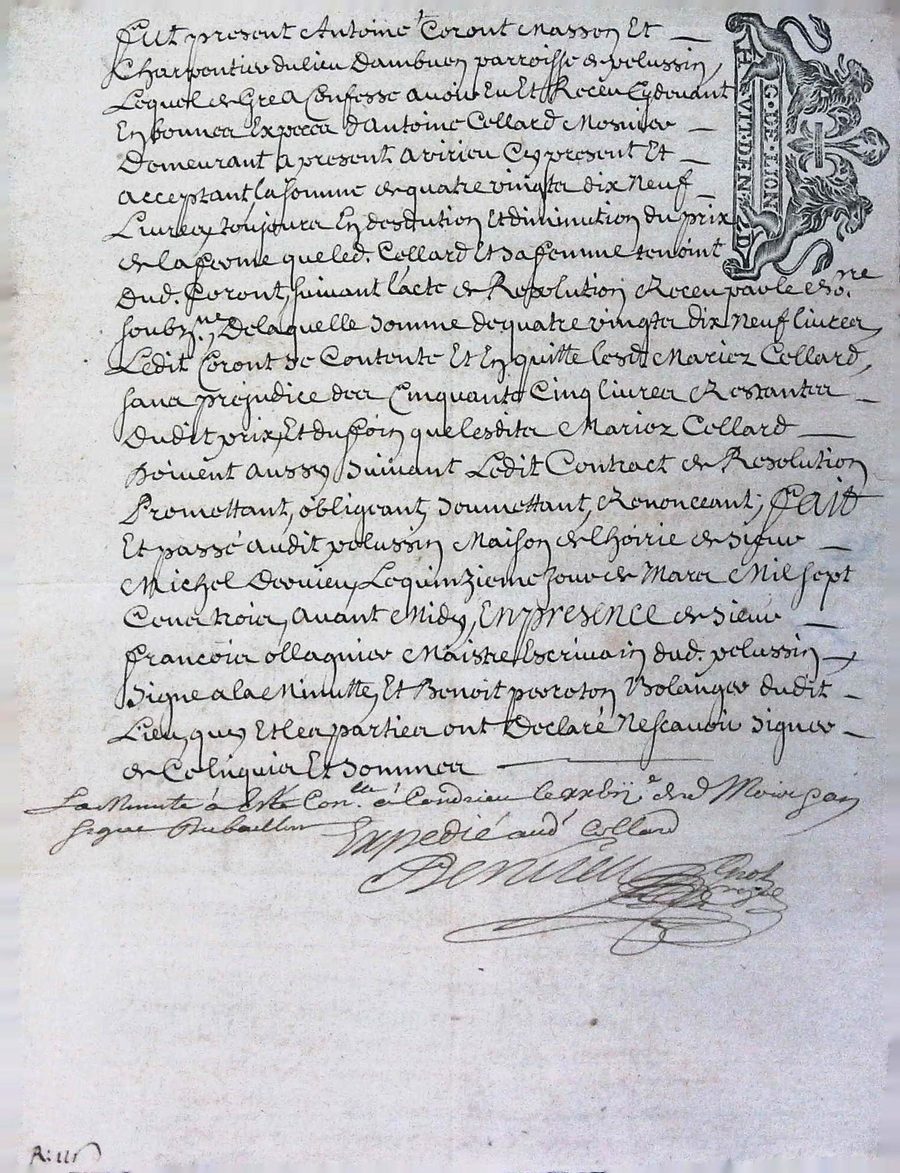 Fut present Antoine Coront Masson Et
Charpentier du lieu Dambuen parroisse de pelussin,
Lequel de Gre A Confesse avoir Eu Et Receu Cydevant
En bonnes Especes d'Antoine Collard Mosnier
Demeurant a present a virieu Cy present Et
acceptant la somme de quatre vingts dix Neuf
Livres, toujours En desdution Et diminution du prix
de la ferme que led. Collard Et sa femme tenoint
dud. Coront, suivant l'acte de Resolution Receu par le No.re
soubz.ne, De laquelle somme de quatre vingts dix Neuf livres,
Ledit Coront se Contente Et En quitte lesd. Mariez Collard,
sans prejudice des Cinquante Cinq livres Restantes
Dudit prix, Et du foin que lesdits Mariez Collard
Doivent aussy, suivant Ledit Contract de Resolution
Promettant, obligeant, soumettant, Renonceant; Fait
Et passé audit pelussin Maison de lhoirie de sieur
Michel Dervieu, Le quinzieme Jour de Mars Mil sept
Cens trois, avant Midy, En presence de sieur
François ollagnier Maistre Escrivain dud. pelussin
Signe a la Minutte, Et Benoit peroton Bolanger dudit
Lieu, quy Et les parties ont Declaré Ne scavoir signer
de Ce Enquis Et sommes
La Minute à Esté Con.lee à Condrieu le xxbij.e dud Mois
signe Dubaillon
Expedié aud Collard
Dervieu
G. DE LION
HUIT. DEN.